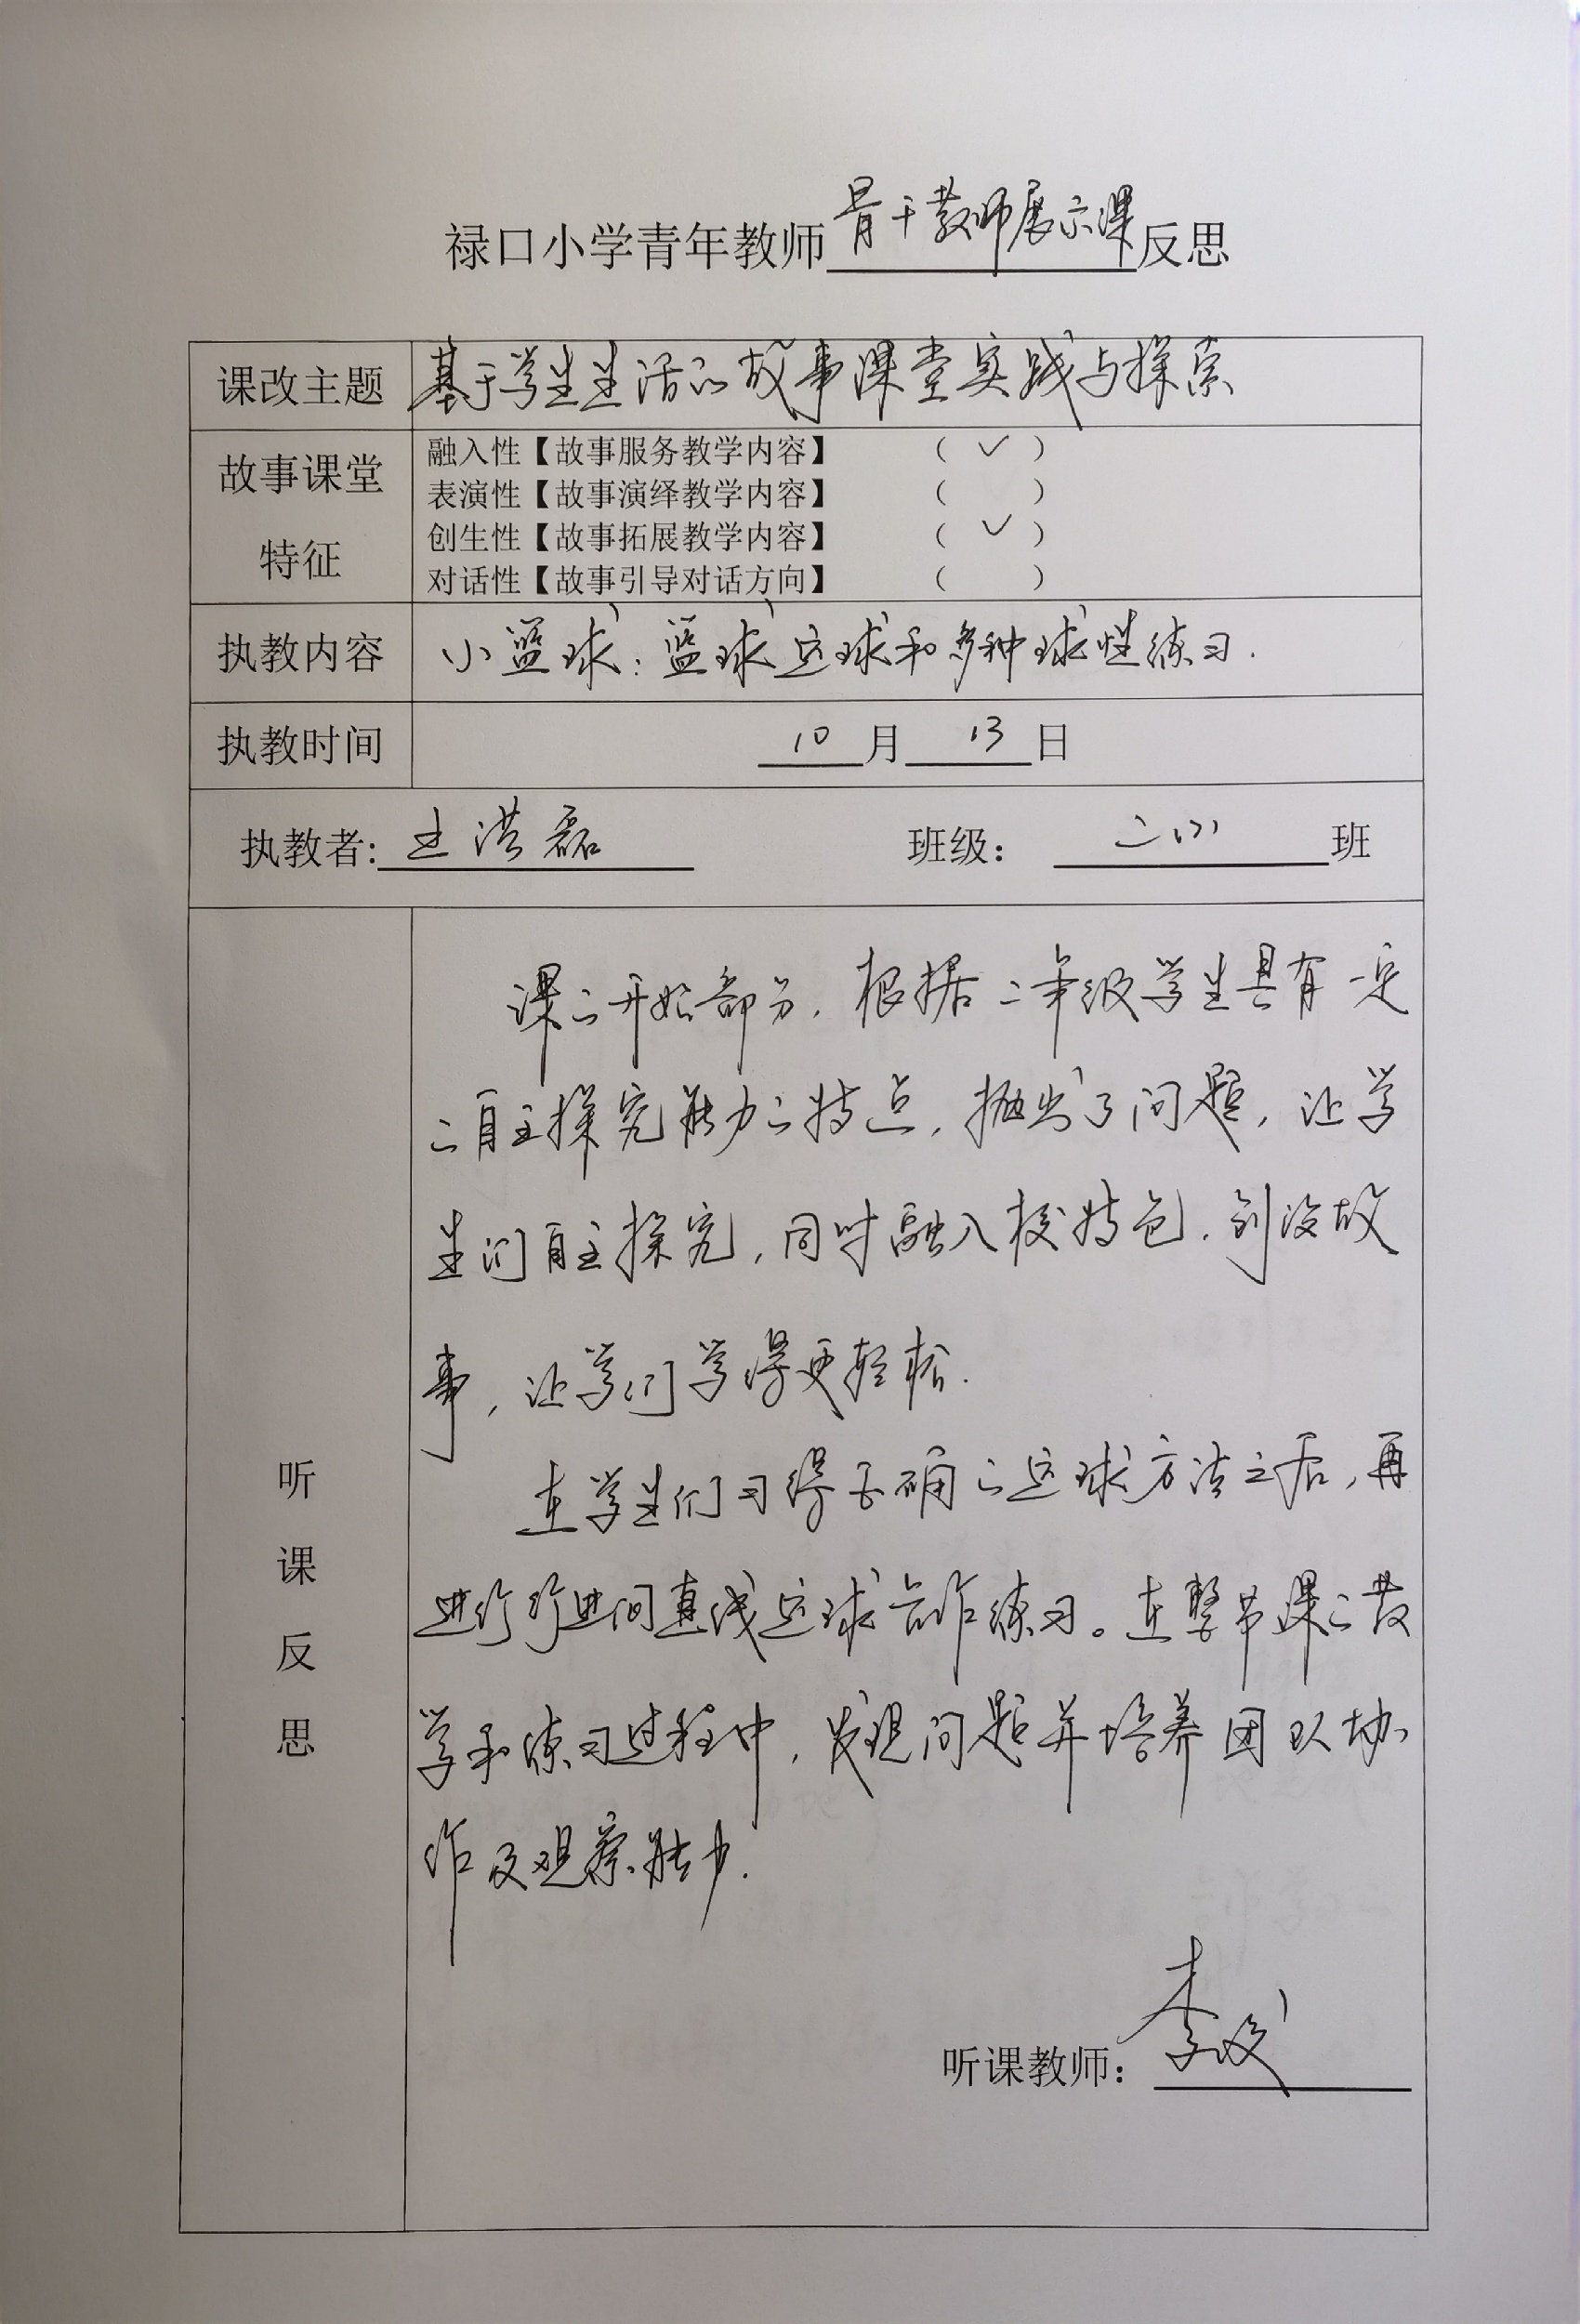 禄口小学青年教师骨干教师展示课反思
课改主题 基于学生生活的故事课堂实践与探索
故事课堂特征
融入性【故事服务教学内容】 ( ✓ )
表演性【故事演绎教学内容】 ( )
创生性【故事拓展教学内容】 ( ✓ )
对话性【故事引导对话方向】 ( )
执教内容 小篮球：篮球运球和多种球性练习.
执教时间 10月13日
执教者: 王洪磊 班级： 班
听课反思
课的开始部分，根据二年级学生具有一定
的自主探究能力的特点，抛出了问题，让学
生们自主探究，同时融入校特色，创设故
事，让学们学得更轻松.
在学生们习得正确的运球方法之后，再
进行行进间直线运球合作练习。在整节课的教
学和练习过程中，发现问题并培养团队协
作及观察能力.
听课教师： 李